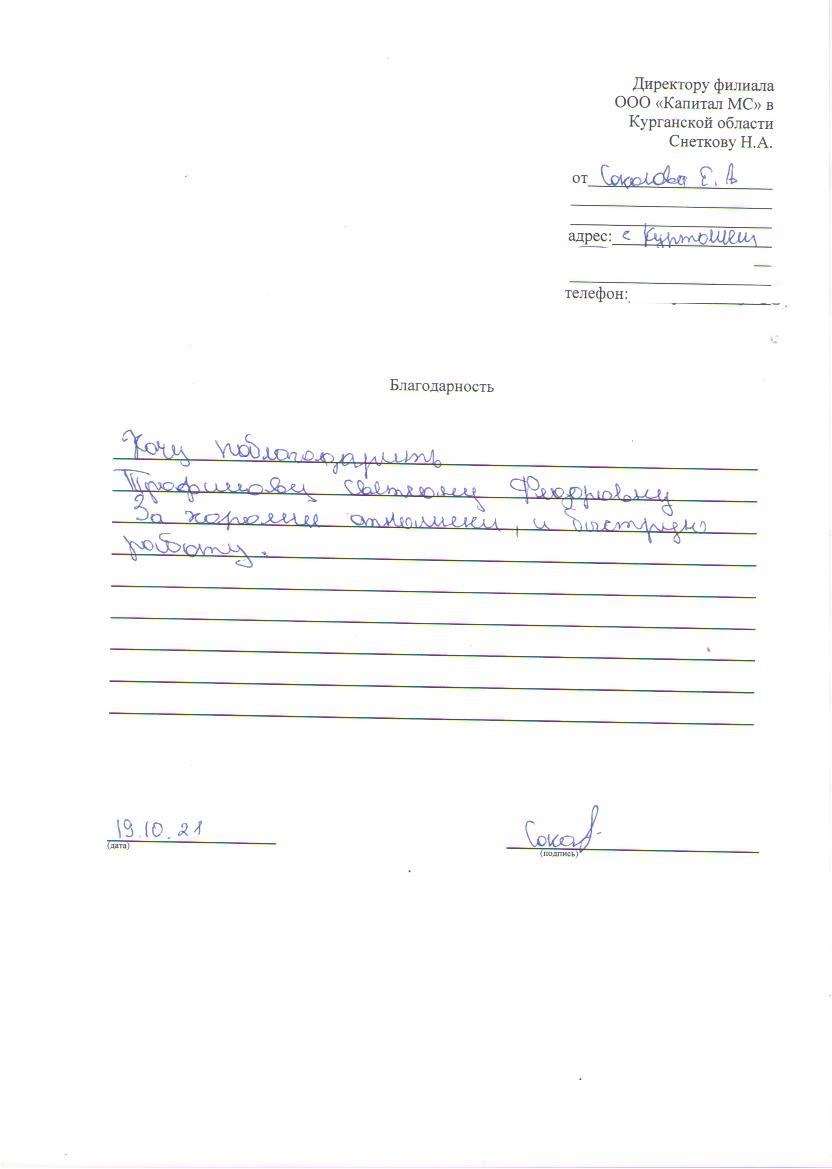 Директору филиала
ООО «Капитал МС» в
Курганской области
Снеткову Н.А.
от Соколова Е. А
адрес: с
телефон:
Благодарность
Хочу поблагодарить
Трофимову Светлану Федоровну
За хорошие , и быструю
работу.
19.10.21
(дата)
(подпись)